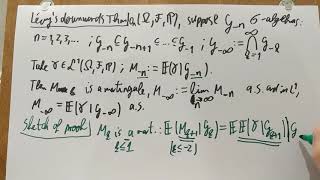 Lévy's downwards Thm (Ω, F, P), suppose G_{-n} σ-algebras:
n = 1,2,3,... ; G_{-n} ⊆ G_{-n+1} ⊆ ... ⊆ G_{-1} ; G_{-∞} := ⋂_{k=1}^{∞} G_{-k}
Take γ ∈ L¹(Ω, F, P), M_{-n} := E(γ | G_{-n})
Then is a martingale, M_{-∞} := lim_{n→∞} M_{-n} a.s. and in L¹,
M_{-∞} = E(γ | G_{-∞}) a.s.
Sketch of proof: M_k is a mart.: E(M_{k+1} | G_k) = E(E(γ | G_{k+1}) | G
k ≤ -1 (k ≤ -2)